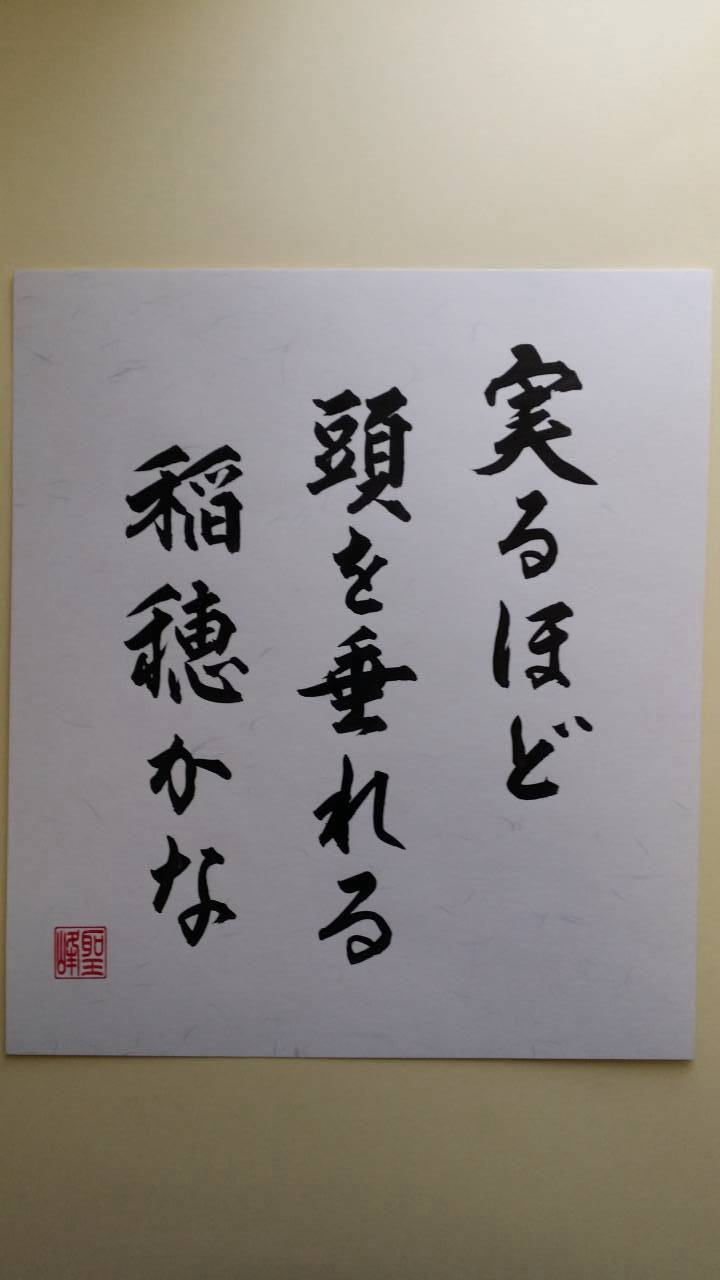 実るほど
頭を垂れる
稲穂かな
聖峰